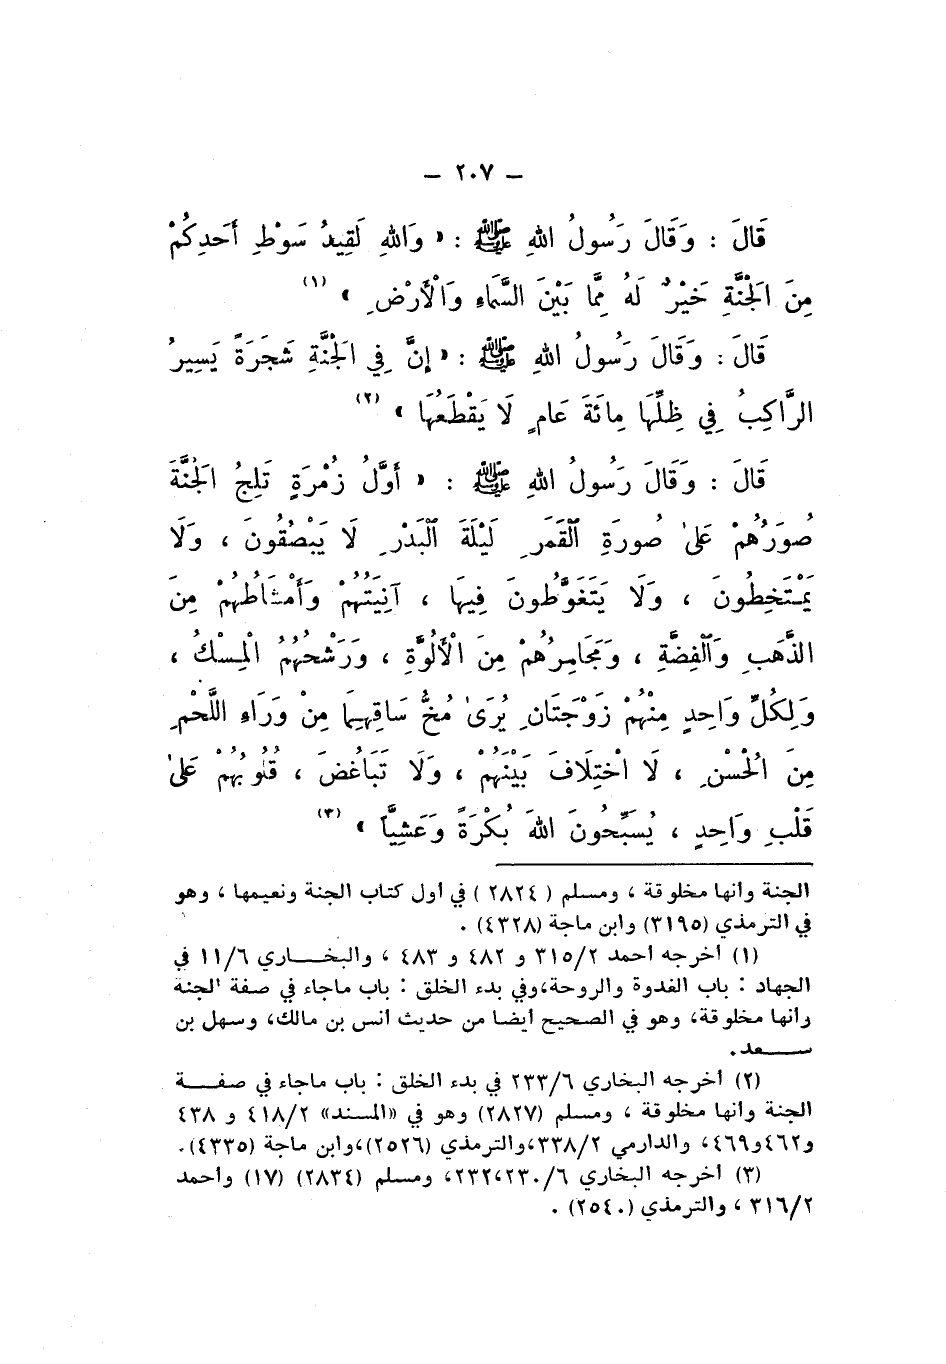 – ٢٠٧ –
قَالَ : وَقَالَ رَسُولُ اللهِ ﷺ : « وَاللهِ لَقِيدُ سَوْطِ أَحَدِكُمْ
مِنَ الْجَنَّةِ خَيْرٌ لَهُ مِمَّا بَيْنَ السَّمَاءِ وَالْأَرْضِ » (١)
قَالَ : وَقَالَ رَسُولُ اللهِ ﷺ : « إِنَّ فِي الْجَنَّةِ شَجَرَةً يَسِيرُ
الرَّاكِبُ فِي ظِلِّهَا مِائَةَ عَامٍ لَا يَقْطَعُهَا » (٢)
قَالَ : وَقَالَ رَسُولُ اللهِ ﷺ : « أَوَّلُ زُمْرَةٍ تَلِجُ الْجَنَّةَ
صُوَرُهُمْ عَلَىٰ صُورَةِ ٱلْقَمَرِ لَيْلَةَ ٱلْبَدْرِ لَا يَبْصُقُونَ ، وَلَا
يَمْتَخِطُونَ ، وَلَا يَتَغَوَّطُونَ فِيهَا ، آنِيَتُهُمْ وَأَمْشَاطُهُمْ مِنَ
الذَّهَبِ وَٱلْفِضَّةِ ، وَمَجَامِرُهُمْ مِنَ الْأَلُوَّةِ ، وَرَشْحُهُمُ الْمِسْكُ ،
وَلِكُلِّ وَاحِدٍ مِنْهُمْ زَوْجَتَانِ يُرَىٰ مُخُّ سَاقِهِمَا مِنْ وَرَاءِ اللَّحْمِ
مِنَ الْحُسْنِ ، لَا اخْتِلَافَ بَيْنَهُمْ ، وَلَا تَبَاغُضَ ، قُلُوبُهُمْ عَلَىٰ
قَلْبِ وَاحِدٍ ، يُسَبِّحُونَ اللهَ بُكْرَةً وَعَشِيًّا » (٣)
الجنة وأنها مخلوقة ، ومسلم ( ٢٨٢٤ ) في أول كتاب الجنة ونعيمها ، وهو
في الترمذي (٣١٩٥) وابن ماجة (٤٣٢٨) .
(١) أخرجه أحمد ٣١٥/٢ و ٤٨٢ و ٤٨٣ ، والبخاري ١١/٦ في
الجهاد : باب الغدوة والروحة،وفي بدء الخلق : باب ماجاء في صفة الجنة
وأنها مخلوقة، وهو في الصحيح أيضا من حديث أنس بن مالك، وسهل بن
سعد.
(٢) أخرجه البخاري ٢٣٣/٦ في بدء الخلق : باب ماجاء في صفة
الجنة وأنها مخلوقة ، ومسلم (٢٨٢٧) وهو في «المسند» ٤١٨/٢ و ٤٣٨
و٤٦٢و٤٦٩، والدارمي ٣٣٨/٢،والترمذي (٢٥٢٦)،وابن ماجة (٤٣٣٥).
(٣) أخرجه البخاري ٢٣٠/٦،٢٣٢، ومسلم (٢٨٣٤) (١٧) وأحمد
٣١٦/٢ ، والترمذي (٢٥٤٠) .